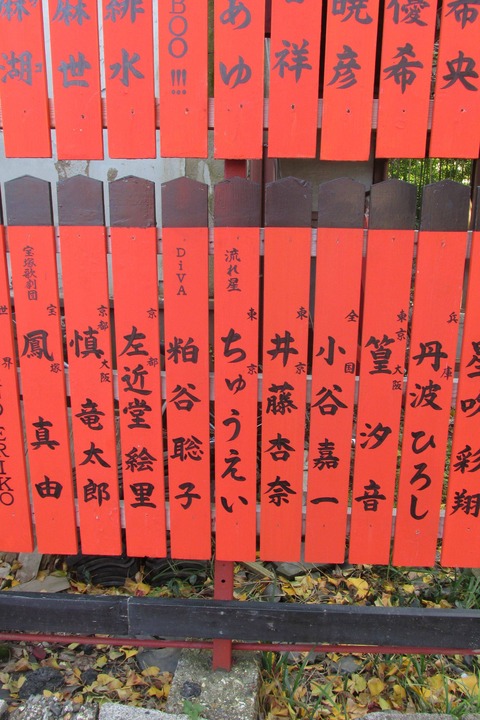 麻湖
麻世
緋水
BOO!!!
あゆ
祥
暁彦
優希
希央
世界 ERIKO
宝塚歌劇団 宝塚 鳳真由
京都 大阪 慎竜太郎
京都 左近堂絵里
DiVA 粕谷聡子
流れ星 東京 ちゅうえい
東京 井藤杏奈
全国 小谷嘉一
東京 大阪 篁汐音
兵庫 丹波ひろし
星吹彩翔